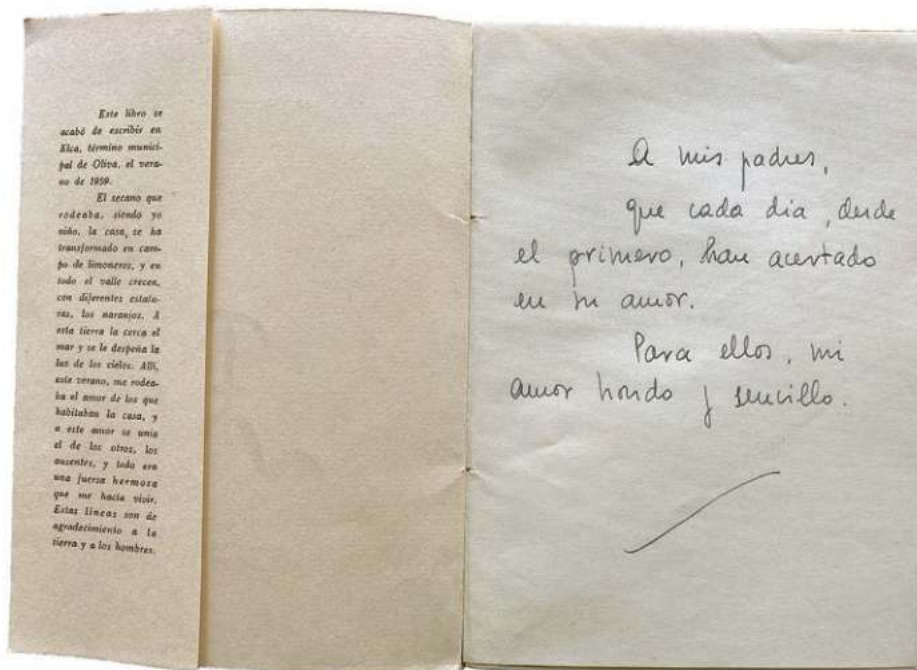 Este libro se
acabó de escribir en
Elca, término munici-
pal de Oliva, el vera-
no de 1959.
El secano que
rodeaba, siendo yo
niño, la casa, se ha
transformado en cam-
po de limoneros, y en
todo el valle crecen,
con diferentes estatu-
ras, los naranjos. A
esta tierra la cerca el
mar y se le despeña la
luz de los cielos. Allí,
este verano, me rodea-
ba el amor de los que
habitaban la casa, y
a este amor se unía
el de los otros, los
ausentes, y todo era
una fuerza hermosa
que me hacía vivir.
Estas líneas son de
agradecimiento a la
tierra y a los hombres.
A mis padres,
que cada día, desde
el primero, han acertado
en su amor.
Para ellos, mi
amor hondo y sencillo.